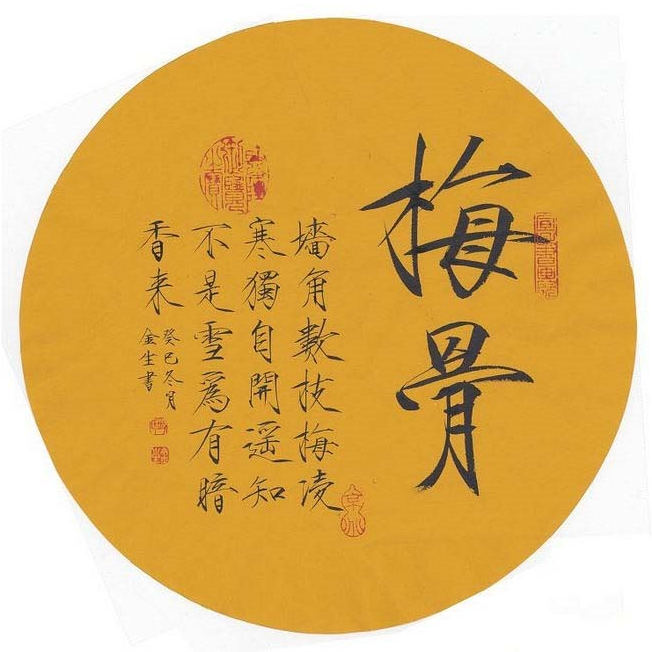 梅骨
墻角數枝梅凌
寒獨自開遥知
不是雪爲有暗
香来
癸巳冬月
金生書